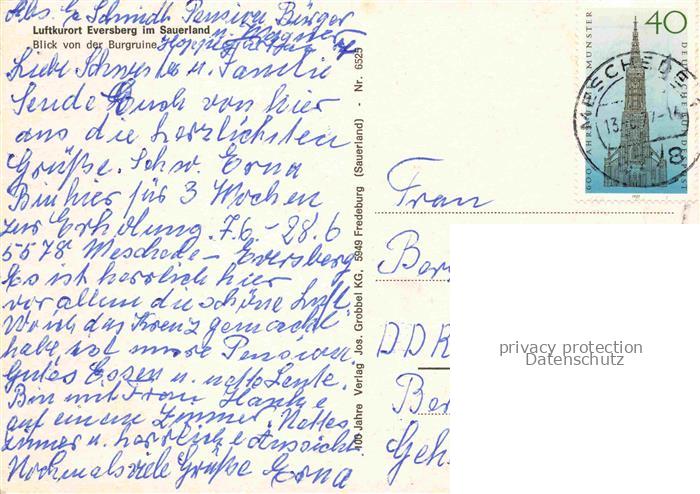 Abs. E. Schmidt Pension Bürger
Luftkurort Eversberg im Sauerland
Blick von der Burgruine
Liebe Schwester u. Familie
Sende Euch von hier
aus die herzlichsten
Grüße. Schw. Erna
Bin hier für 3 Wochen
zur Erholung. 7.6. - 28.6
5578 Meschede - Eversberg
Es ist herrlich hier
vor allem die schöne Luft.
Wo ich das Kreuz gemacht
habe ist unsre Pension
Gutes Essen u. nette Leute.
Bin mit Frau Hanke
auf einem Zimmer. Nettes
Zimmer u. herrliche Aussicht
Nochmals viele Grüße Erna
100 Jahre Verlag Jos. Grobbel KG, 5949 Fredeburg (Sauerland) - Nr. 6525
40
600 JAHRE ULMER MÜNSTER
DEUTSCHE BUNDESPOST
1977
MESCHEDE
8
Frau
Ber
DDR
Ber
Geh
privacy protection
Datenschutz